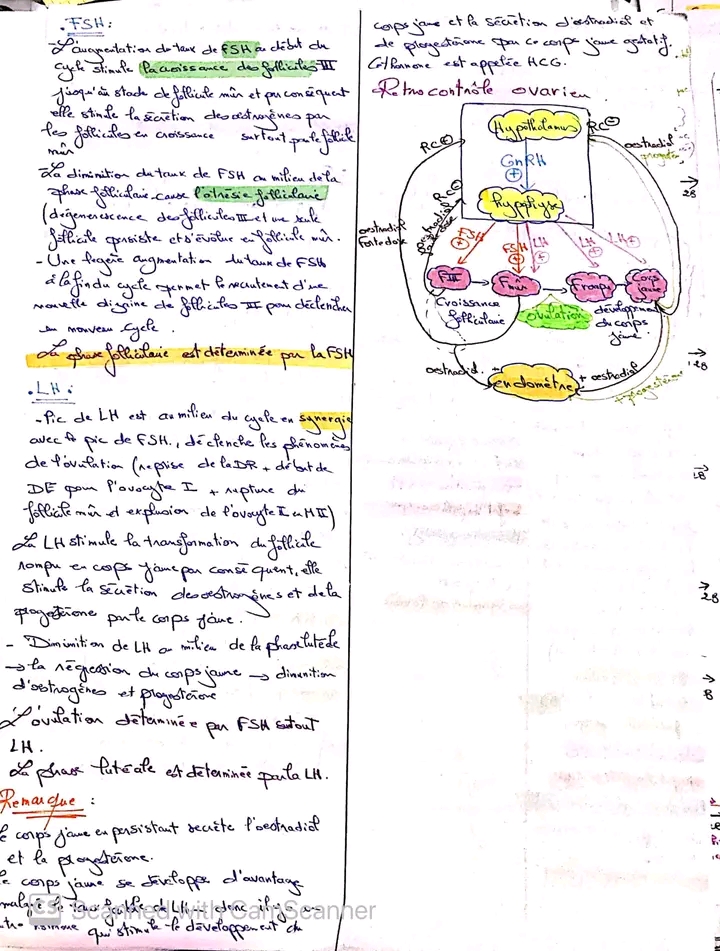 . FSH :
- L'augmentation du taux de FSH au début du
cycle stimule la croissance des follicules III
jusqu'au stade de follicule mûr et par conséquent
elle stimule la sécrétion des oestrogènes par
les follicules en croissance surtout par le follicule
mûr
- La diminition du taux de FSH au milieu de la
phase folliculaire cause l'atrésie folliculaire
(dégenerescence des follicules III et une seule
follicule persiste et s'évolue en follicule mûr.
- Une légère augmentation du taux de FSH
à la fin du cycle permet le recrutement d'une
nouvelle dizaine de follicules III pour déclencher
un nouveau cycle.
La phase folliculaire est déterminée par la FSH
. LH :
- Pic de LH est au milieu du cycle en synergie
avec le pic de FSH, déclenche les phénomènes
de l'ovulation (reprise de la DR + début de
DE pour l'ovocyte I + rupture du
follicule mûr et explosion de l'ovocyte II en M II)
La LH stimule la transformation du follicule
rompu en corps jaune par conséquent, elle
stimule la sécrétion des oestrogènes et de la
progestérone par le corps jaune.
- Diminition de LH au milieu de la phase lutéale
→ la régression du corps jaune → diminition
d'oestrogènes et progestérone
L'ovulation déterminée par FSH surtout
LH.
La phase lutéale est déterminée par la LH.
Remarque :
le corps jaune en persistant secrète l'oestradiol
et la progestérone.
le corps jaune se développe d'avantage
malgré le taux faible de LH donc il y a
hormone qui stimule le développement du
CS Scanned with CamScanner
corps jaune et la sécrétion d'oestradiol et
de progestérone par ce corps jaune gestatif.
Cet hormone est appelée HCG.
Retrocontrôle ovarien
Hypothalamus
RC ⊕
RC ⊖
GnRH
⊕
hypophyse
RC ⊖
oestradiol
forte dose
oestradiol
faible dose
oestradiol
FSH ⊕
FSH ⊕
LH ⊕
LH ⊕
LH ⊕
F III
F mûr
F rompu
Corps
jaune
Croissance
folliculaire
Ovulation
développement
du corps
jaune
oestradiol +
endomètre
+ oestradiol
+ progestérone